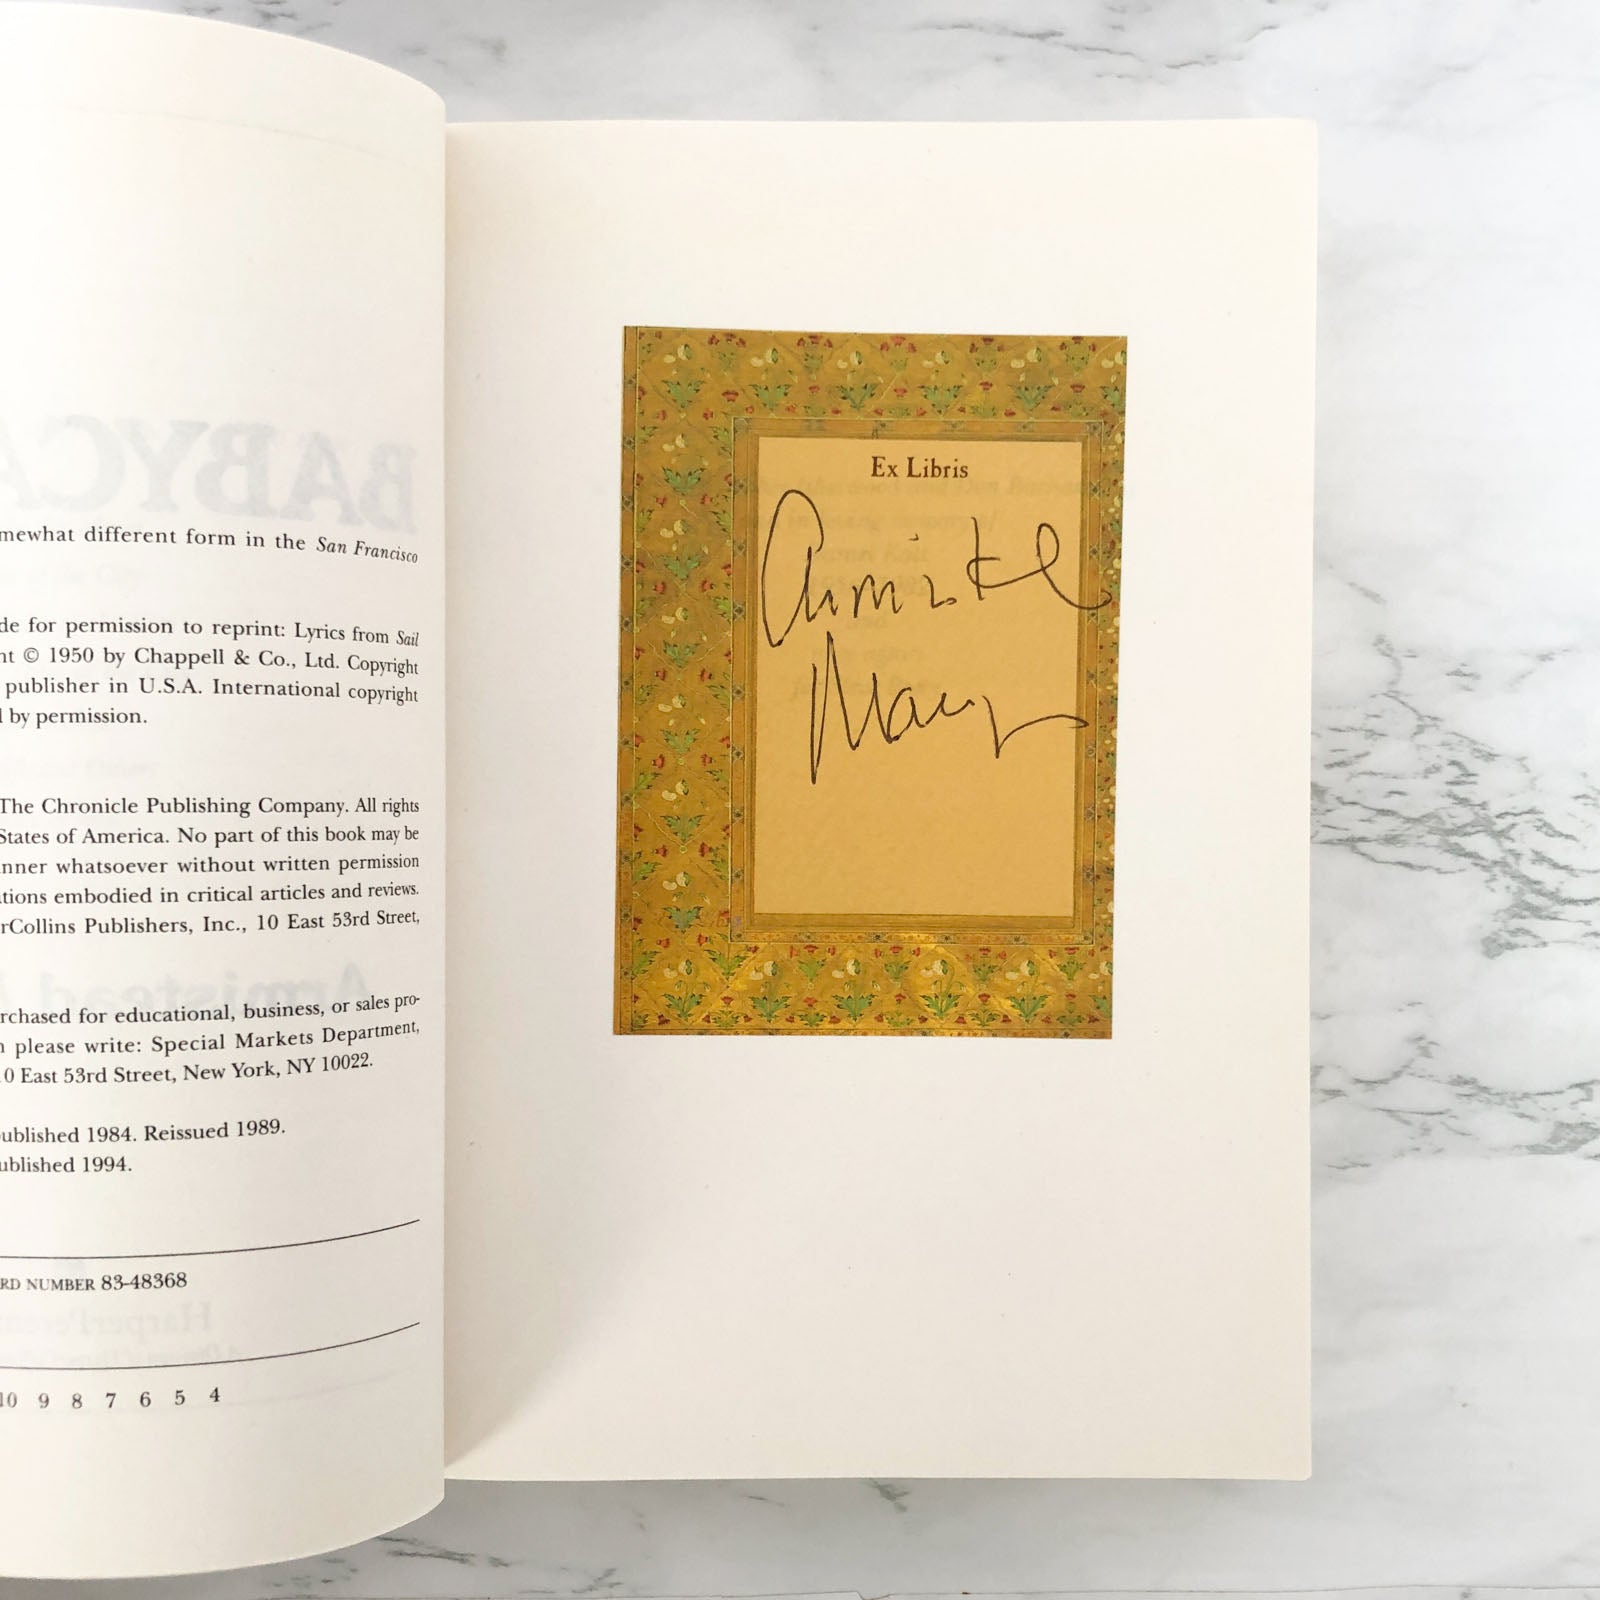 mewhat different form in the San Francisco
de for permission to reprint: Lyrics from Sail
nt © 1950 by Chappell & Co., Ltd. Copyright
publisher in U.S.A. International copyright
d by permission.
The Chronicle Publishing Company. All rights
States of America. No part of this book may be
nner whatsoever without written permission
tions embodied in critical articles and reviews.
rCollins Publishers, Inc., 10 East 53rd Street,
rchased for educational, business, or sales pro-
n please write: Special Markets Department,
10 East 53rd Street, New York, NY 10022.
ublished 1984. Reissued 1989.
ublished 1994.
RD NUMBER 83-48368
10 9 8 7 6 5 4
Ex Libris
Armistead
Maupin